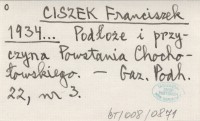 CISZEK Franciszek
1934... Podłoże i przy-
czyna Powstania Chocho-
łowskiego. — Gaz. Podh.
22, nr 3.
bT/008/0841